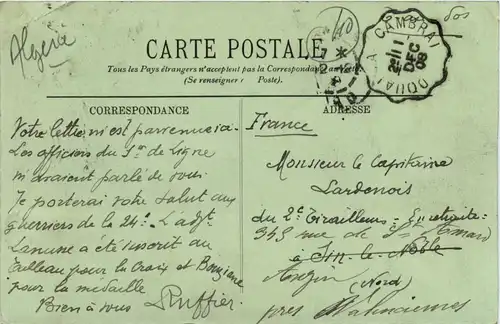 Algérie
CARTE POSTALE
Tous les Pays étrangers n'acceptent pas la Correspondance
(Se renseigner Poste).
DOUAI A CAMBRAI
2E
11
DEC
08
CORRESPONDANCE
ADRESSE
Votre lettre m'est parvenue ici.
Les officiers du 1er de Ligne
m'avaient parlé de vous.
Je porterai votre salut aux
guerriers de la 24e. L'adjt
Lanusse a été inscrit au
Tableau pour la Croix et Bouziane
pour la médaille
Bien à vous Ruffier
France
Monsieur le Capitaine
Lardenois
du 2e Tirailleurs - En retraite
343 rue de St Amand
à Sin-le-Noble
Anzin (Nord)
près Valenciennes